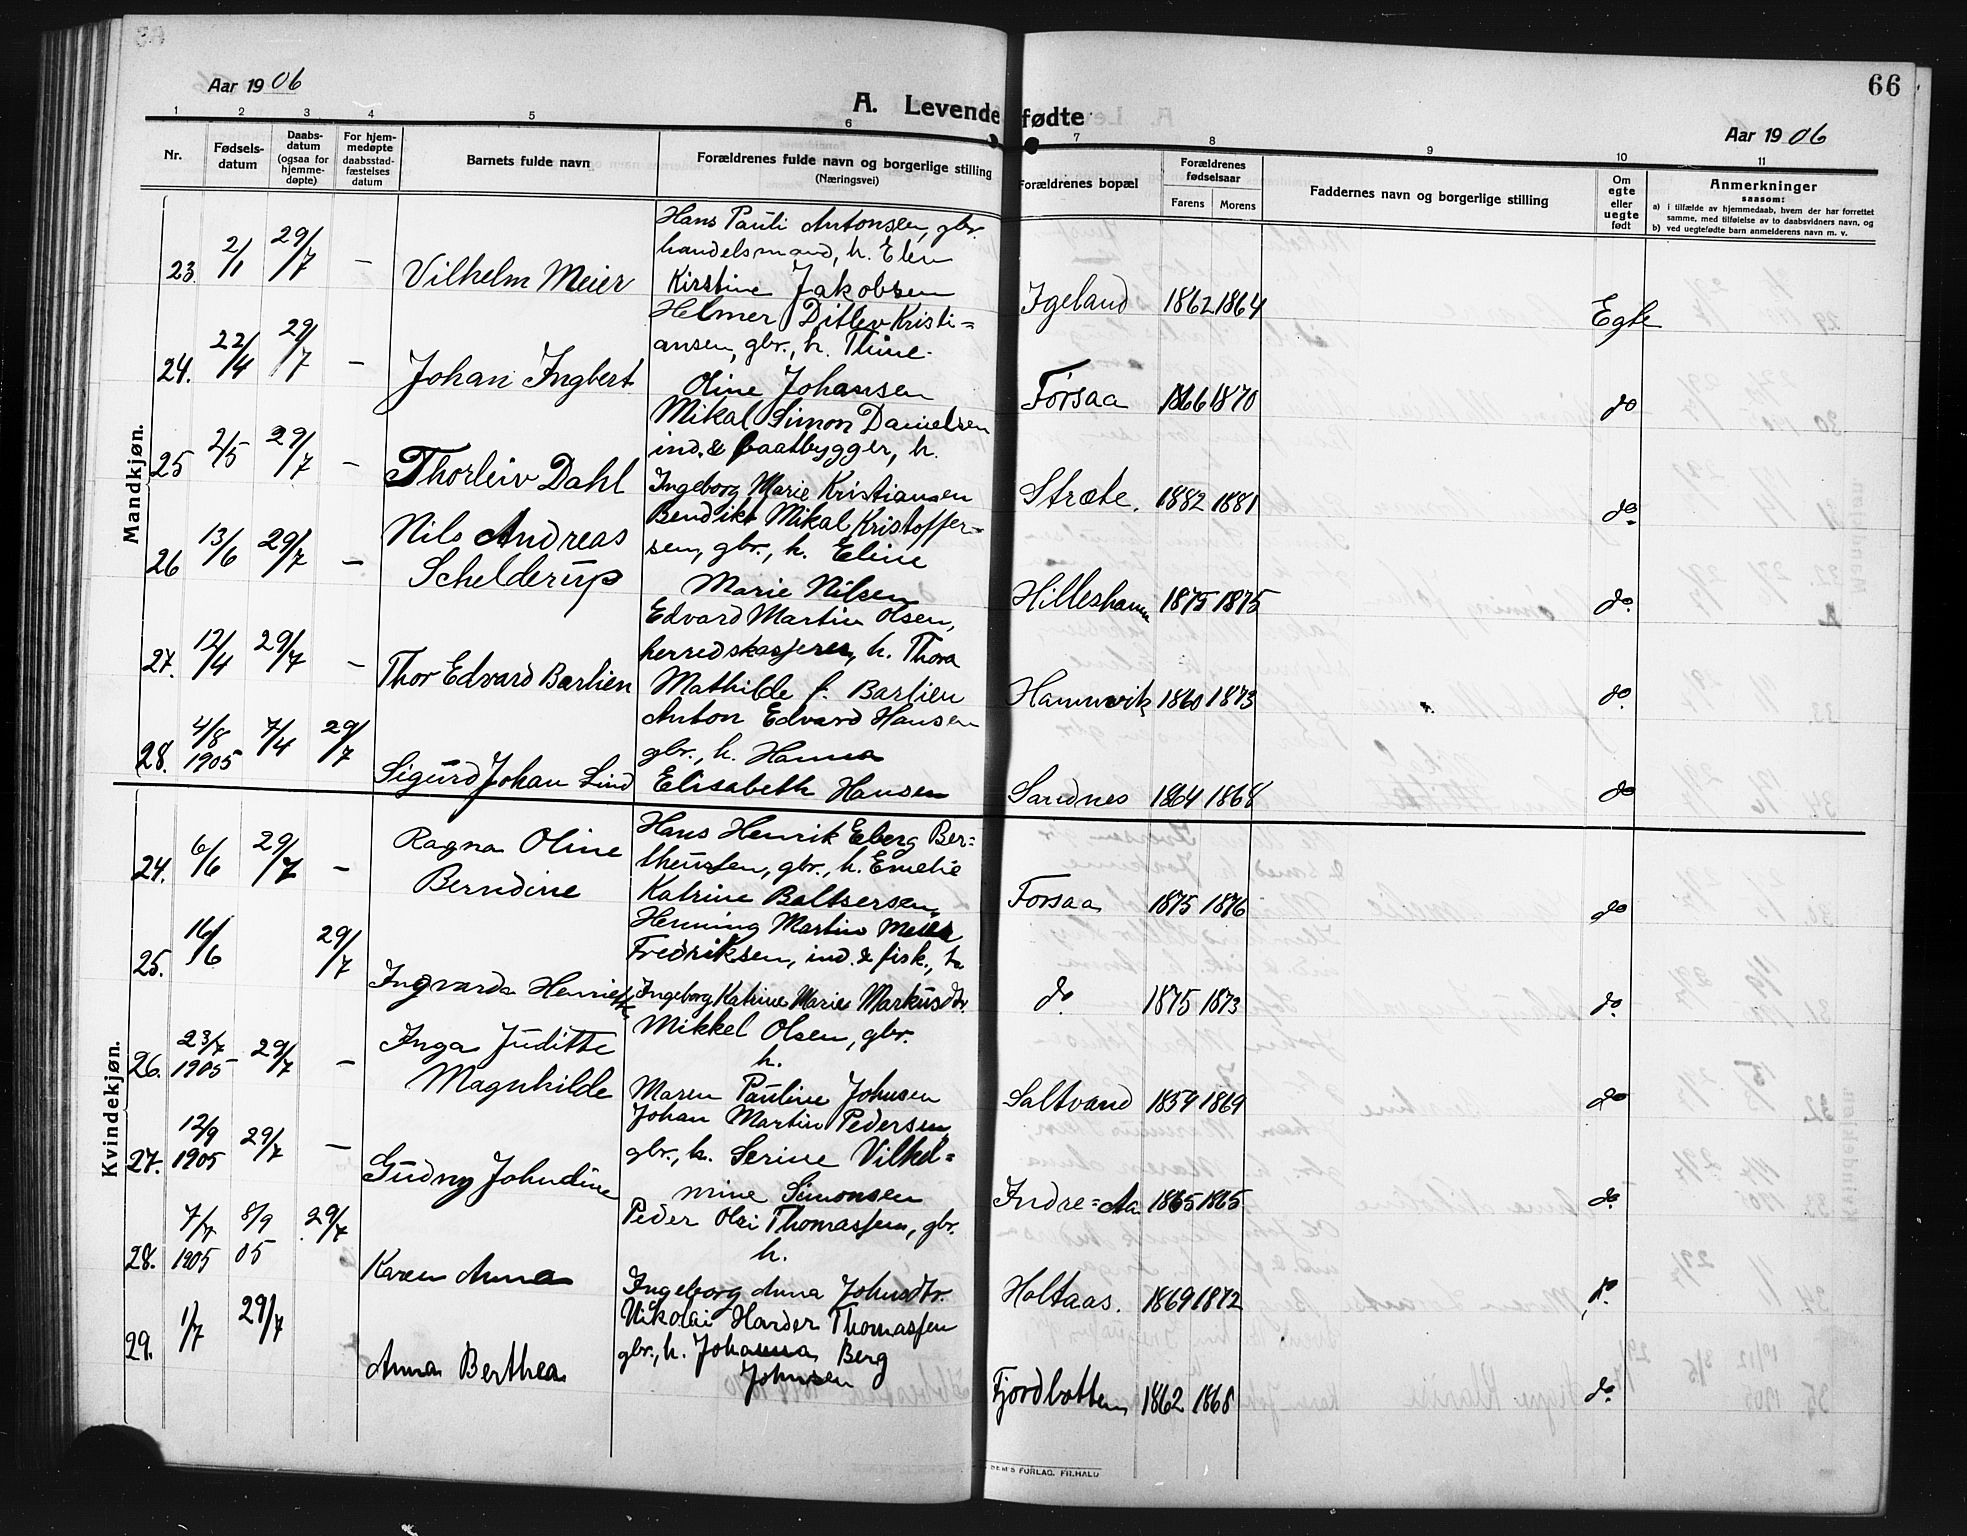 66
Aar 1906
A. Levende fødte
Aar 1906
1 2 3 4 5 6 7 8 9 10 11
Nr.
Fødsels-
datum
Daabs-
datum
(ogsaa for
hjemme-
døpte)
For hjem-
medøpte
daabsstad-
fæstelses
datum
Barnets fulde navn
Forældrenes fulde navn og borgerlige stilling
(Næringsvei)
Forældrenes bopæl
Forældrenes
fødselsaar
Farens Morens
Faddernes navn og borgerlige stilling
Om
egte
eller
uegte
født
Anmerkninger
saasom:
a) i tilfælde av hjemmedaab, hvem der har forrettet
samme, med tilføielse av to daabsvidners navn, og
b) ved uegtefødte barn anmelderens navn m. v.
Mandkjøn.
Hans Pauli Antonsen, gbr.
handelsmand, h. Elen
23. 2/1 29/7 – Vilhelm Meier Kirstine Jakobsen Igeland 1862 1864 Egte
Helmer Ditlev Kristi=
ansen, gbr., h. Thine
24. 22/4 29/7 – Johan Ingbert Oline Johansen Forsaa 1866 1870 do
Mikal Simon Danielsen
ind. & baatbygger, h.
25 2/5 29/7 – Thorleiv Dahl Ingeborg Marie Kristiansen Stræte. 1882 1881 do.
Nils Andreas Bendikt Mikal Kristoffer=
sen, gbr., h. Eline
26 13/6 29/7 – Schelderup Marie Nilsen Hilleshamn 1875 1875 do.
Edvard Martin Olsen,
herredskasserer, h. Thora
27. 12/4 29/7 – Thor Edvard Barlien Mathilde f. Barlien Hamnvik 1860 1873 do.
Anton Edvard Hansen
gbr., h. Hanna
28. 4/8 1905 7/4 29/7 Sigurd Johan Lind Elisabeth Hansen Sandnes 1864 1868 do
Kvindekjøn.
Ragna Oline Hans Henrik Eberg Ber=
theussen, gbr., h. Emelie
24. 6/6 29/7 – Berndine Katrine Baltsersen Forsaa 1875 1876 do
Henning Martin Meier
Fredriksen, ind. & fisk., h.
25. 16/6 29/7 Ingvarda Henriette Ingeborg Katrine Marie Markusdtr. do. 1875 1873 do.
Inga Juditte Mikkel Olsen, gbr.
h.
26. 23/7 1905 29/7 – Magnhilde Maren Pauline Johnsen Saltvand 1859 1869 do
Johan Martin Pedersen,
gbr., h. Serine Vilhel=
27. 12/9 1905 29/7 – Gudny Johndine mine Simonsen Indre=Aa 1865 1865 do.
Peder Olai Thomassen, gbr.
h.
28. 7/7 1905 8/9 05 29/7 Karen Anna Ingeborg Anna Johnsdtr. Holtaas. 1869 1872 do.
Nikolai Harder Thomassen
gbr., h. Johanna Berg
29. 1/7 29/7 Anna Berthea Johnsen Fjordbotten 1862 1868 do.
SEM'S FORLAG, FR.HALD